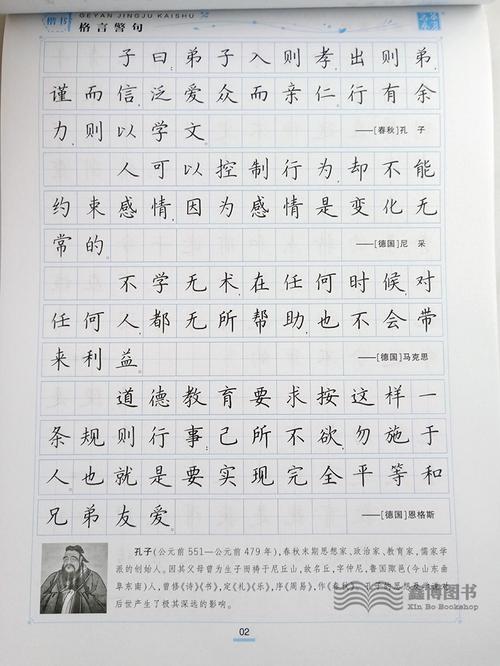 楷书
GEYAN JINGJU KAISHU
格言警句
子曰,弟子入则孝,出则弟,
谨而信,泛爱众而亲仁,行有余
力,则以学文。
——[春秋]孔 子
人可以控制行为,却不能
约束感情,因为感情是变化无
常的。
——[德国]尼 采
不学无术,在任何时候,对
任何人,都无所帮助,也不会带
来利益。
——[德国]马克思
道德教育要求按这样一
条规则行事:己所不欲,勿施于
人。也就是要实现完全平等和
兄弟友爱。
——[德国]恩格斯
孔子(公元前 551—公元前 479 年),春秋末期思想家、政治家、教育家,儒家学
派的创始人。因其父母曾为生子而祷于尼丘山,故名丘,字仲尼,鲁国陬邑(今山东曲
阜东南)人,曾修《诗》《书》,定《礼》《乐》,序《周易》,作《春秋》。孔子的思想及学说对
后世产生了极其深远的影响。
鑫博图书
Xin Bo Bookshop
02